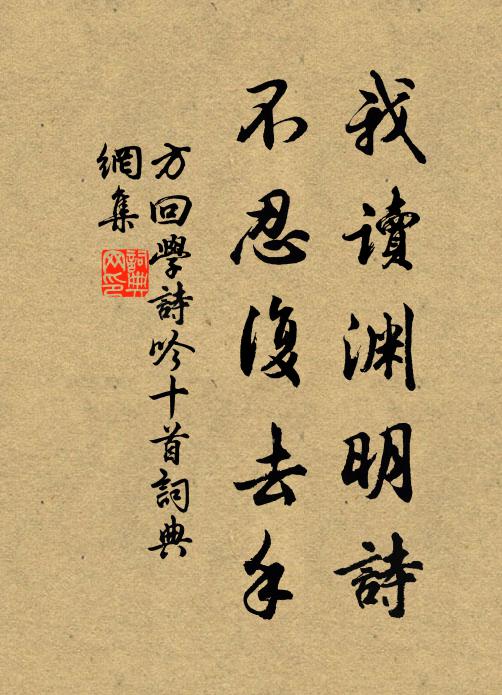 我讀渊明詩
不忍復去手
方回學詩吟十首詞典
網集
詞典
网印